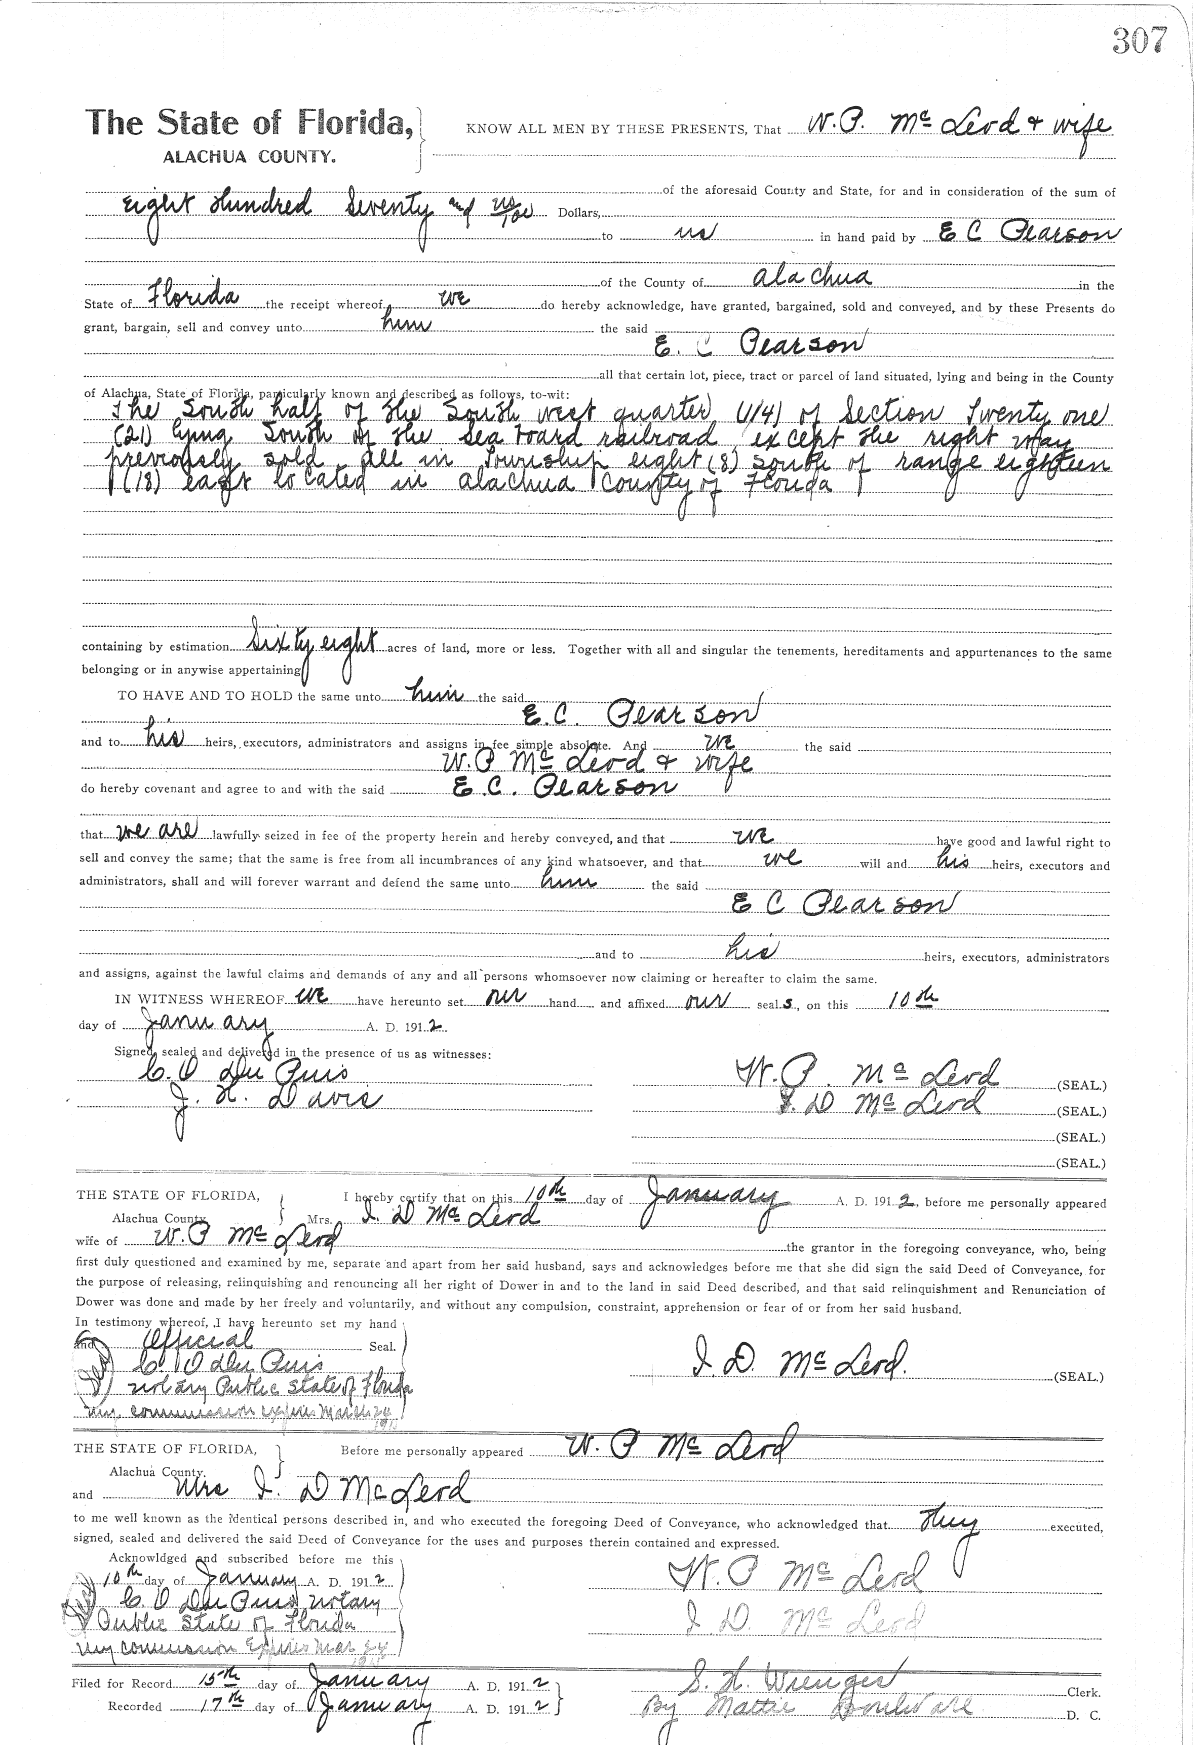 307
The State of Florida,
ALACHUA COUNTY.
KNOW ALL MEN BY THESE PRESENTS, That W. P. Mc Leod & wife
of the aforesaid County and State, for and in consideration of the sum of
Eight Hundred Seventy and no/100 Dollars,
to us in hand paid by E C Pearson
of the County of Alachua in the
State of Florida the receipt whereof we do hereby acknowledge, have granted, bargained, sold and conveyed, and by these Presents do
grant, bargain, sell and convey unto him the said
E. C Pearson
all that certain lot, piece, tract or parcel of land situated, lying and being in the County
of Alachua, State of Florida, particularly known and described as follows, to-wit:
The South half of the South west quarter (1/4) of Section Twenty one
(21) lying South of the Sea board railroad except the right way
previously sold all in Township eight (8) south of range eighteen
(18) east located in Alachua County of Florida
containing by estimation Sixty eight acres of land, more or less. Together with all and singular the tenements, hereditaments and appurtenances to the same
belonging or in anywise appertaining
TO HAVE AND TO HOLD the same unto him the said
E. C. Pearson
and to his heirs, executors, administrators and assigns in fee simple absolute. And we the said
W. P Mc Leod & wife
do hereby covenant and agree to and with the said E. C. Pearson
that we are lawfully seized in fee of the property herein and hereby conveyed, and that we have good and lawful right to
sell and convey the same; that the same is free from all incumbrances of any kind whatsoever, and that we will and his heirs, executors and
administrators, shall and will forever warrant and defend the same unto him the said
E C Pearson
and to his heirs, executors, administrators
and assigns, against the lawful claims and demands of any and all persons whomsoever now claiming or hereafter to claim the same.
IN WITNESS WHEREOF we have hereunto set our hand and affixed our seal s, on this 10th
day of January A. D. 191 2.
Signed, sealed and delivered in the presence of us as witnesses:
C. O Du Puis W. P. Mc Leod (SEAL.)
J. H. Davis I. D Mc Leod (SEAL.)
(SEAL.)
(SEAL.)
THE STATE OF FLORIDA, I hereby certify that on this 10th day of January A. D. 191 2, before me personally appeared
Alachua County. Mrs. I. D Mc Leod
wife of W. P Mc Leod the grantor in the foregoing conveyance, who, being
first duly questioned and examined by me, separate and apart from her said husband, says and acknowledges before me that she did sign the said Deed of Conveyance, for
the purpose of releasing, relinquishing and renouncing all her right of Dower in and to the land in said Deed described, and that said relinquishment and Renunciation of
Dower was done and made by her freely and voluntarily, and without any compulsion, constraint, apprehension or fear of or from her said husband.
In testimony whereof, I have hereunto set my hand
and Official Seal.
C. O Du Puis
Notary Public State of Florida
My commission expires March 24
I. D. Mc Leod. (SEAL.)
THE STATE OF FLORIDA, Before me personally appeared W. P Mc Leod
Alachua County.
and Mrs I. D McLeod
to me well known as the identical persons described in, and who executed the foregoing Deed of Conveyance, who acknowledged that they executed,
signed, sealed and delivered the said Deed of Conveyance for the uses and purposes therein contained and expressed.
Acknowldged and subscribed before me this
10th day of January A. D. 191 2
C O Du Puis Notary
Public State of Florida
My commission Expires Mar 24
W. P Mc Leod
I. D Mc Leod
Filed for Record 15th day of January A. D. 191 2
Recorded 17th day of January A. D. 191 2
S. H. Wienges Clerk.
By Mattie Boulware D. C.